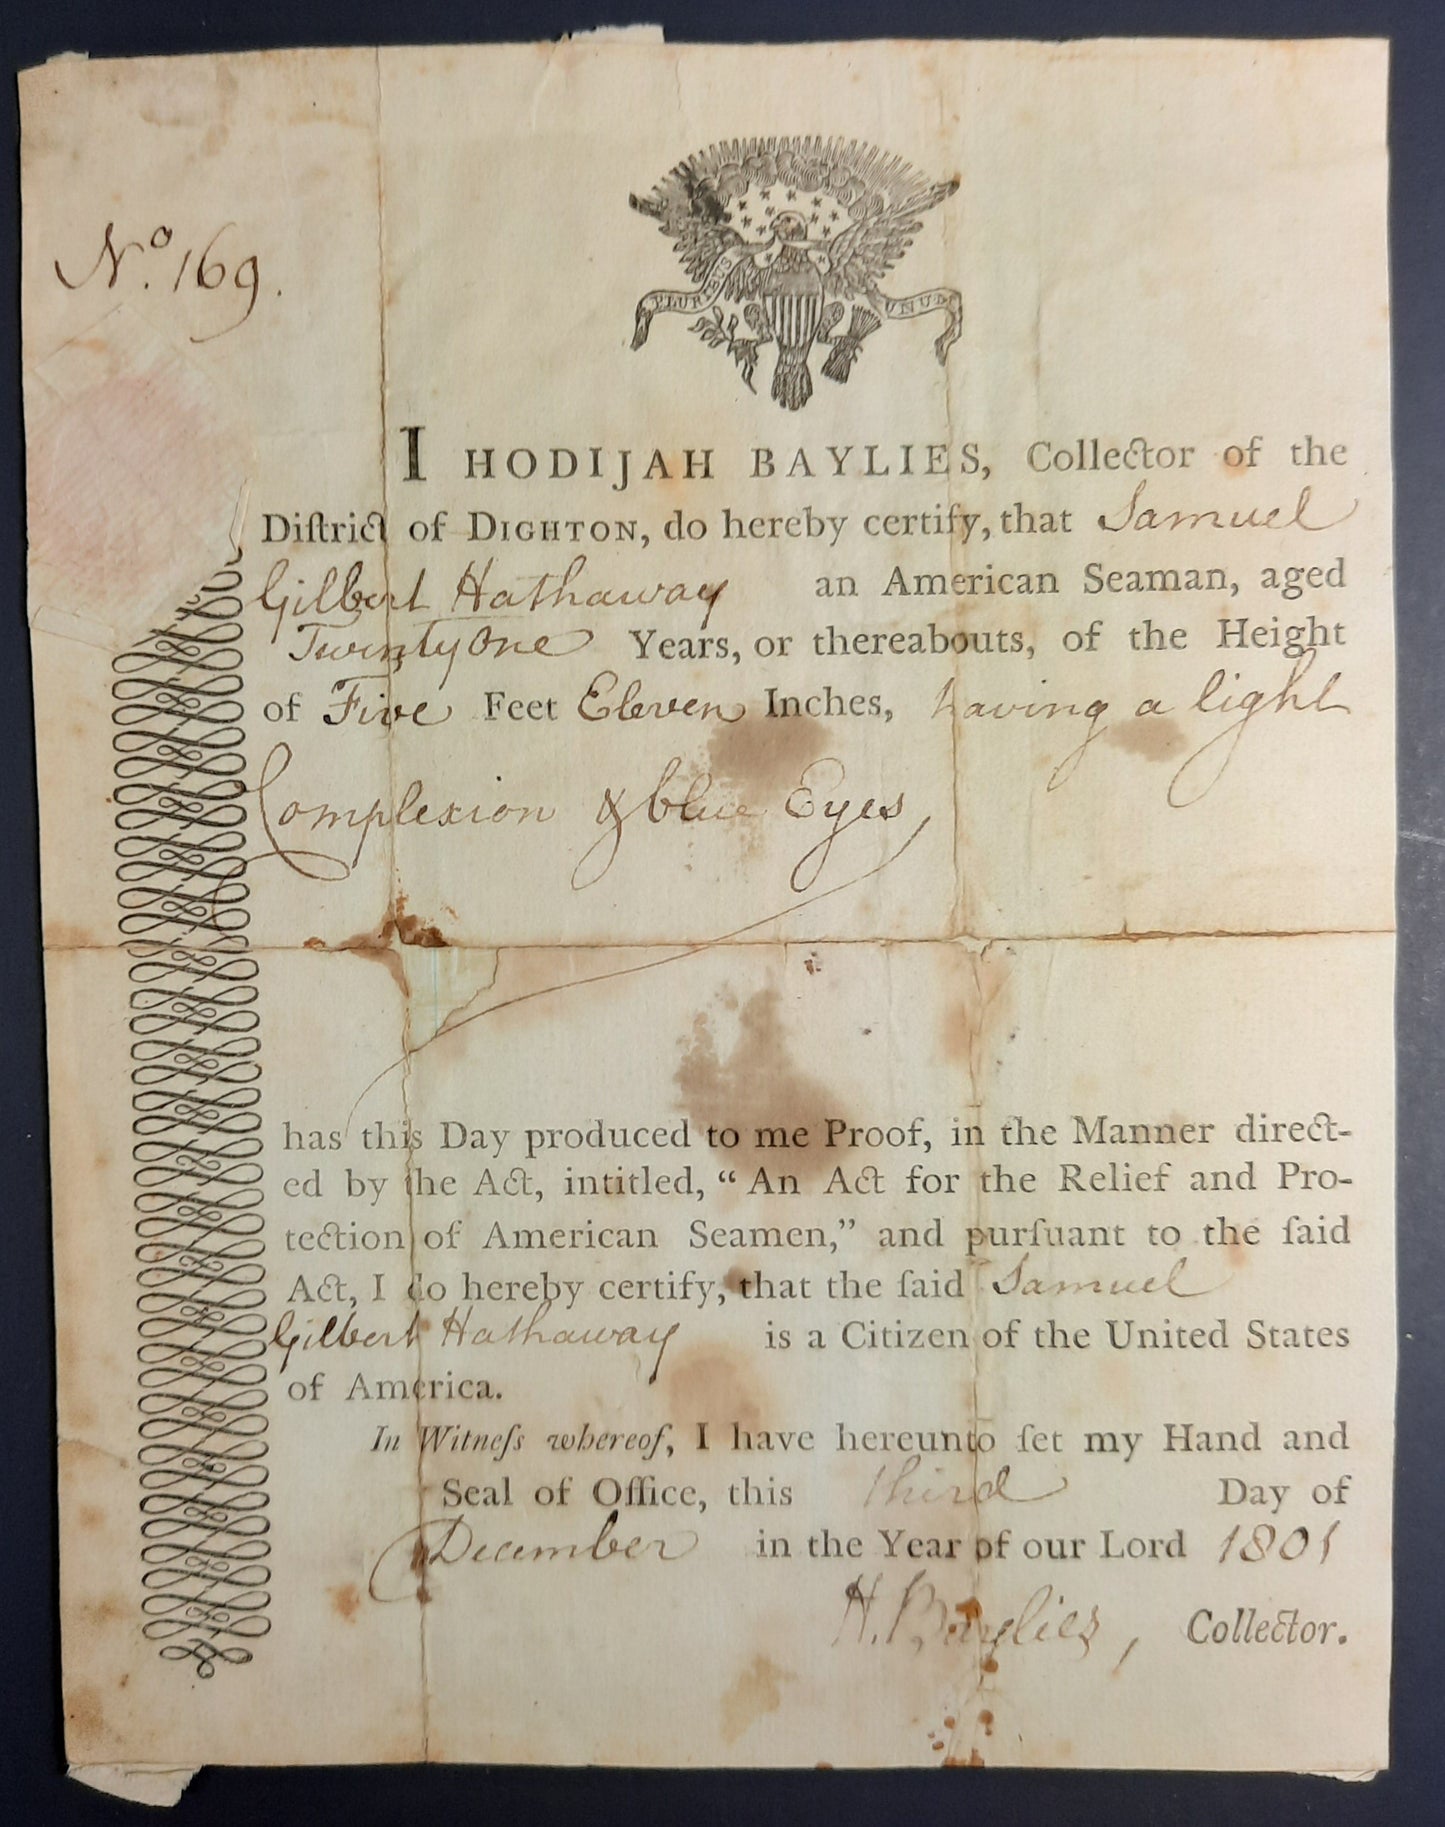 No. 169.
PLURIBUS UNUM
I HODIJAH BAYLIES, Collector of the
Diſtrict of DIGHTON, do hereby certify, that Samuel
Gilbert Hathaway an American Seaman, aged
Twenty One Years, or thereabouts, of the Height
of Five Feet Eleven Inches, having a light
Complexion & blue Eyes,
has this Day produced to me Proof, in the Manner direct-
ed by the Act, intitled, “An Act for the Relief and Pro-
tection of American Seamen,” and purſuant to the ſaid
Act, I do hereby certify, that the ſaid Samuel
Gilbert Hathaway is a Citizen of the United States
of America.
In Witneſs whereof, I have hereunto ſet my Hand and
Seal of Office, this third Day of
December in the Year of our Lord 1801
H. Baylies, Collector.